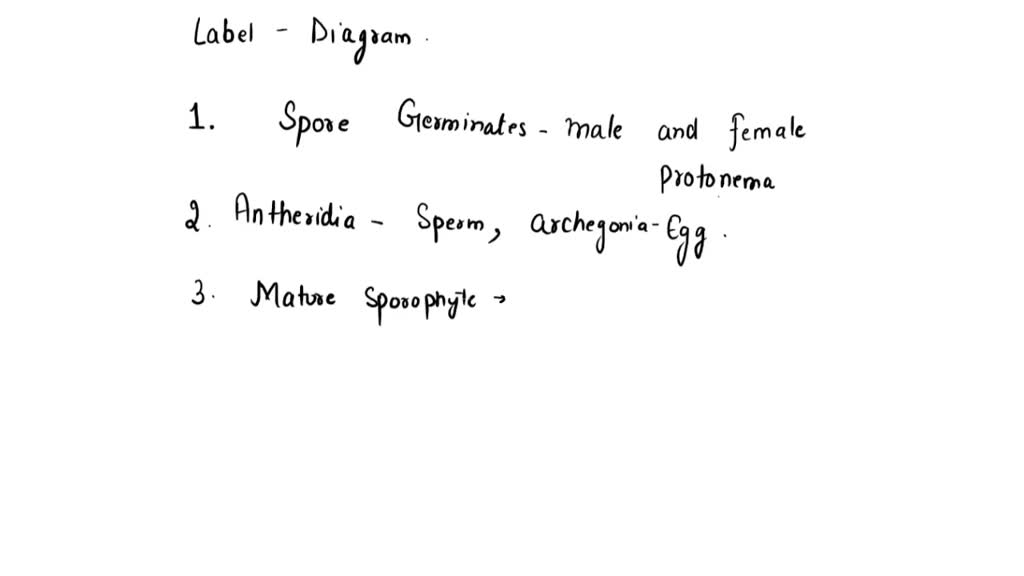 Label - Diagram.
1. Spore Germinates - male and female
protonema
2. Antheridia - Sperm, archegonia - Egg.
3. Mature Sporophyte →